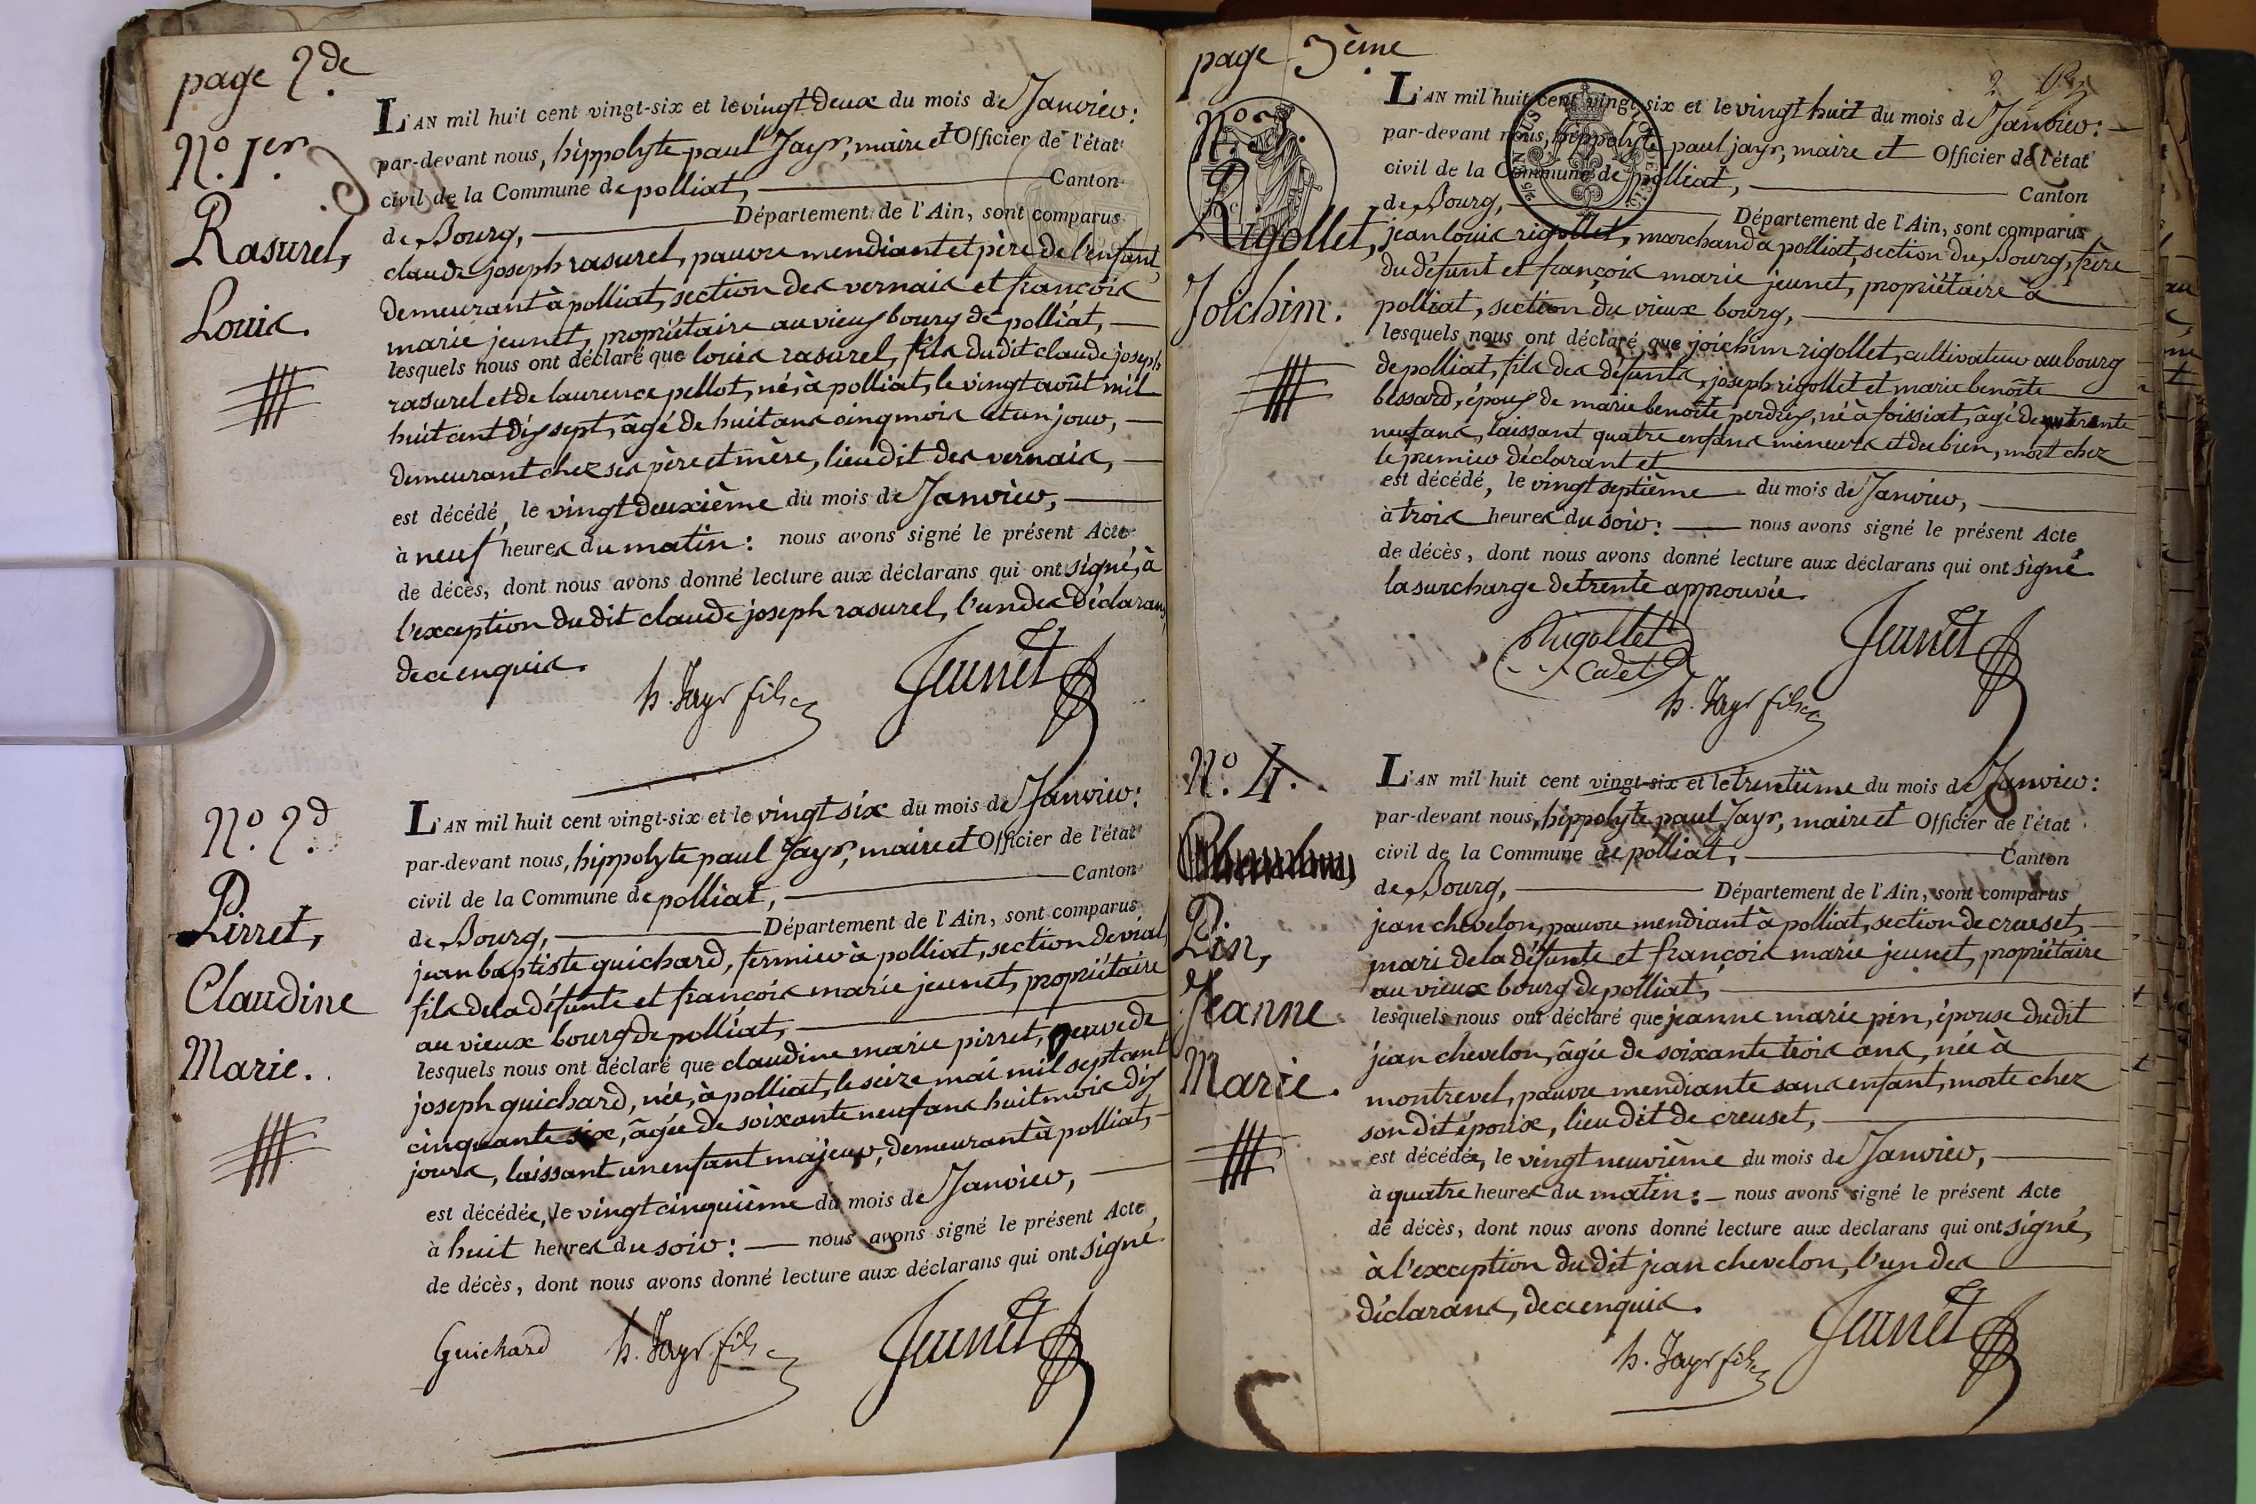 page 2de
N.o 1er.
Rasurel,
Louis.
L'AN mil huit cent vingt-six et le vingt deux du mois de Janvier:
par-devant nous, hippolyte paul Jayr, maire et Officier de l'état
civil de la Commune de polliat, Canton
de Bourg, Département de l'Ain, sont comparus
claude joseph rasurel, pauvre mendiant et père de l'enfant,
demeurant à polliat, section des vernais et françois
marie jeunet, propriétaire au vieux bourg de polliat,
lesquels nous ont déclaré que louis rasurel, fils du dit claude joseph
rasurel et de laurence pellot, né, à polliat, le vingt août mil
huit cent dix sept, âgé de huit ans cinq mois et un jour,
demeurant chez ses père et mère, lieu dit des vernais,
est décédé, le vingt deuxième du mois de Janvier,
à neuf heures du matin: nous avons signé le présent Acte
de décès, dont nous avons donné lecture aux déclarans qui ont signé, à
l'exception du dit claude joseph rasurel, l'un des déclarans,
de ce enquis.
h. Jayr fils Jeunet
N.o 2d.
Pirret,
Claudine
Marie.
L'AN mil huit cent vingt-six et le vingt six du mois de Janvier:
par-devant nous, hippolyte paul Jayr, maire et Officier de l'état
civil de la Commune de polliat, Canton
de Bourg, Département de l'Ain, sont comparus
jean baptiste guichard, fermier à polliat, section de vial,
fils de la défunte et françois marie jeunet, propriétaire
au vieux bourg de polliat,
lesquels nous ont déclaré que claudine marie pirret, veuve de
joseph guichard, née, à polliat, le seize mai mil sept cent
cinquante six, âgée de soixante neuf ans huit mois dix
jours, laissant un enfant majeur, demeurant à polliat,
est décédée, le vingt cinquième du mois de Janvier,
à huit heures du soir: nous avons signé le présent Acte
de décès, dont nous avons donné lecture aux déclarans qui ont signé
Guichard h. Jayr fils Jeunet
page 3ème
2
N.o 3.
Rigollet,
Joichim.
L'AN mil huit cent vingt-six et le vingt huit du mois de Janvier:
par-devant nous, hippolyte paul jayr, maire et Officier de l'état
civil de la Commune de polliat, Canton
de Bourg, Département de l'Ain, sont comparus
jean louis rigollet, marchand à polliat, section du Bourg, frère
du défunt et françois marie jeunet, propriétaire à
polliat, section du vieux bourg,
lesquels nous ont déclaré que joichim rigollet, cultivateur au bourg
de polliat, fils des défunts, joseph rigollet et marie benoîte
bessard, époux de marie benoîte perdrix, né à foissiat, âgé de trente
neuf ans, laissant quatre enfans mineurs et du bien, mort chez
le premier déclarant et
est décédé, le vingt septième du mois de Janvier,
à trois heures du soir: nous avons signé le présent Acte
de décès, dont nous avons donné lecture aux déclarans qui ont signé
la surcharge de trente approuvée.
Rigollet Cadet Jeunet
h. Jayr fils
N.o 4.
Pin,
Jeanne
Marie.
L'AN mil huit cent vingt-six et le trentième du mois de Janvier:
par-devant nous, hippolyte paul Jayr, maire et Officier de l'état
civil de la Commune de polliat, Canton
de Bourg, Département de l'Ain, sont comparus
jean chevelon, pauvre mendiant à polliat, section de creuset,
mari de la défunte et françois marie jeunet, propriétaire
au vieux bourg de polliat,
lesquels nous ont déclaré que jeanne marie pin, épouse du dit
jean chevelon, âgée de soixante trois ans, née à
montrevel, pauvre mendiante sans enfant, morte chez
son dit époux, lieu dit de creuset,
est décédée, le vingt neuvième du mois de Janvier,
à quatre heures du matin: nous avons signé le présent Acte
de décès, dont nous avons donné lecture aux déclarans qui ont signé,
à l'exception du dit jean chevelon, l'un des
déclarans, de ce enquis.
h. Jayr fils Jeunet